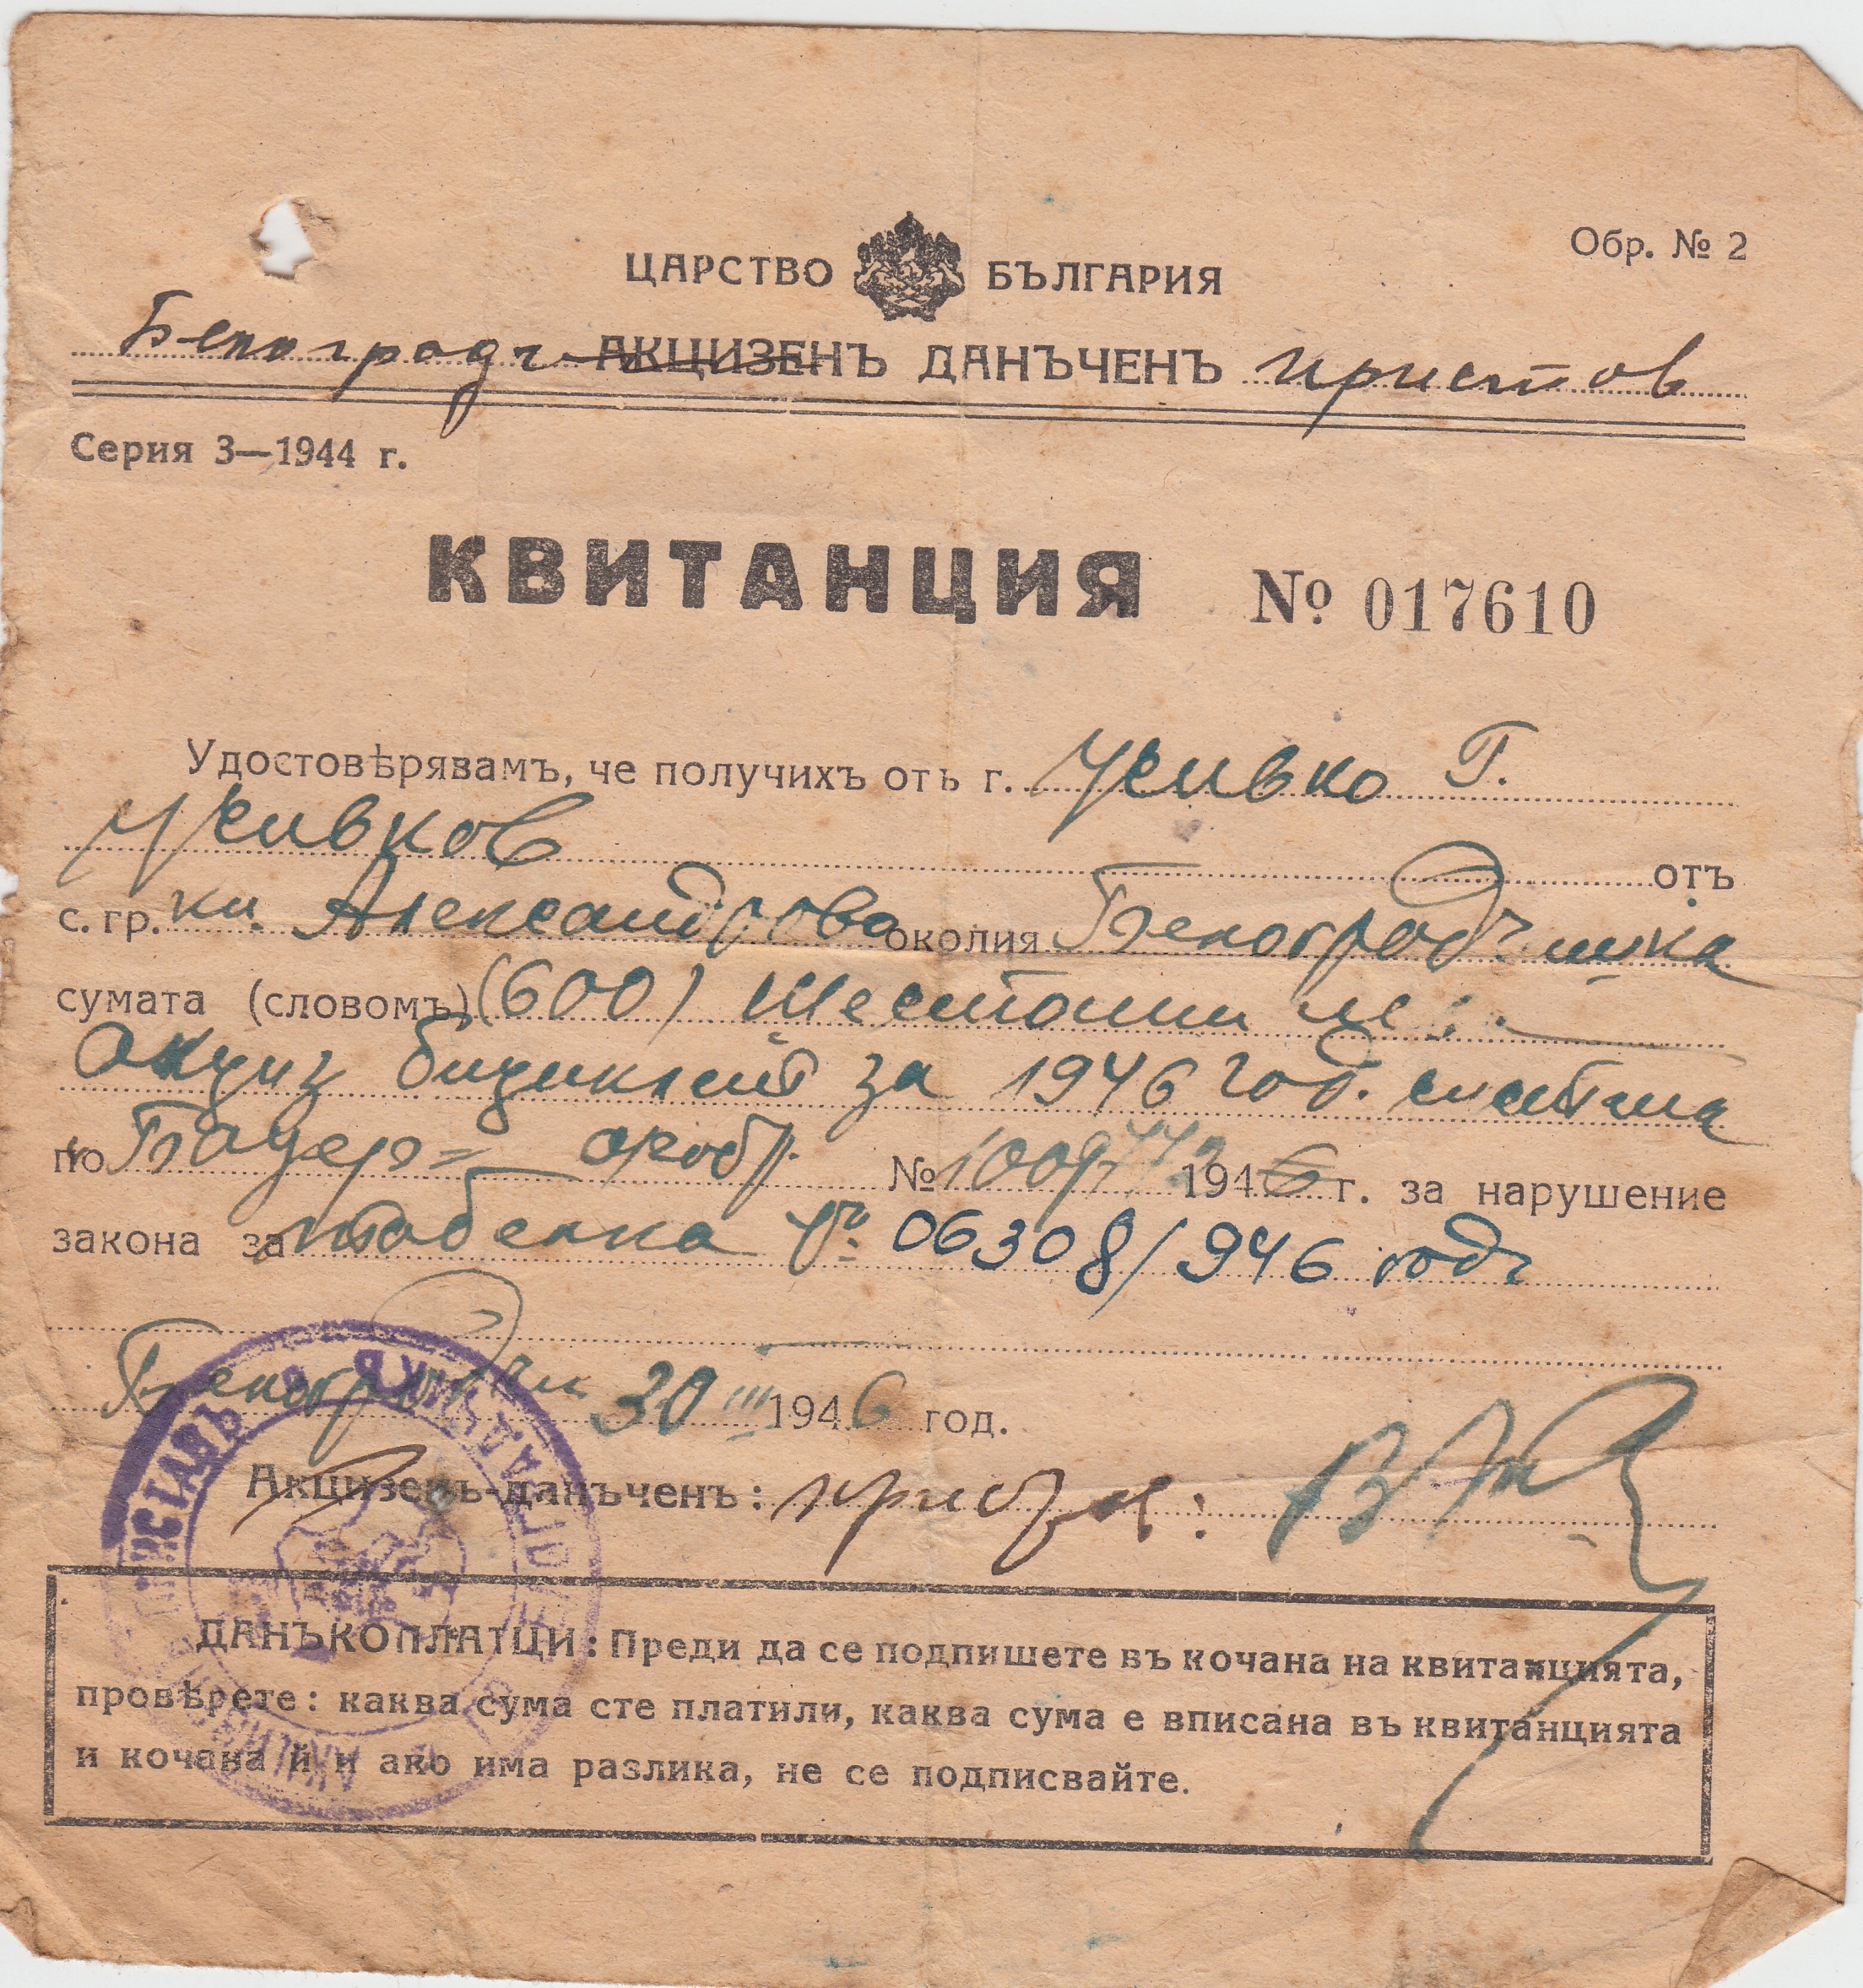 Обр. № 2
ЦАРСТВО БЪЛГАРИЯ
Белоградч. АКЦИЗЕНЪ ДАНЪЧЕНЪ пристав
Серия 3—1944 г.
КВИТАНЦИЯ № 017610
Удостовѣрявамъ, че получихъ отъ г. Живко Г.
Живков отъ
с. гр. кн. Александрово околия Белоградчишка
сумата (словомъ) (600) Шестотин лв.
Акциз бициклет за 1946 год. сметка
по № 1009 1946 г. за нарушение
закона за табелка № 06308/946 год.
Белоградчик 30 III 1946 год.
Акцизенъ-данъченъ:
ДАНЪКОПЛАТЦИ: Преди да се подпишете въ кочана на квитанцията,
провѣрете: каква сума сте платили, каква сума е вписана въ квитанцията
и кочана ѝ и ако има разлика, не се подписвайте.